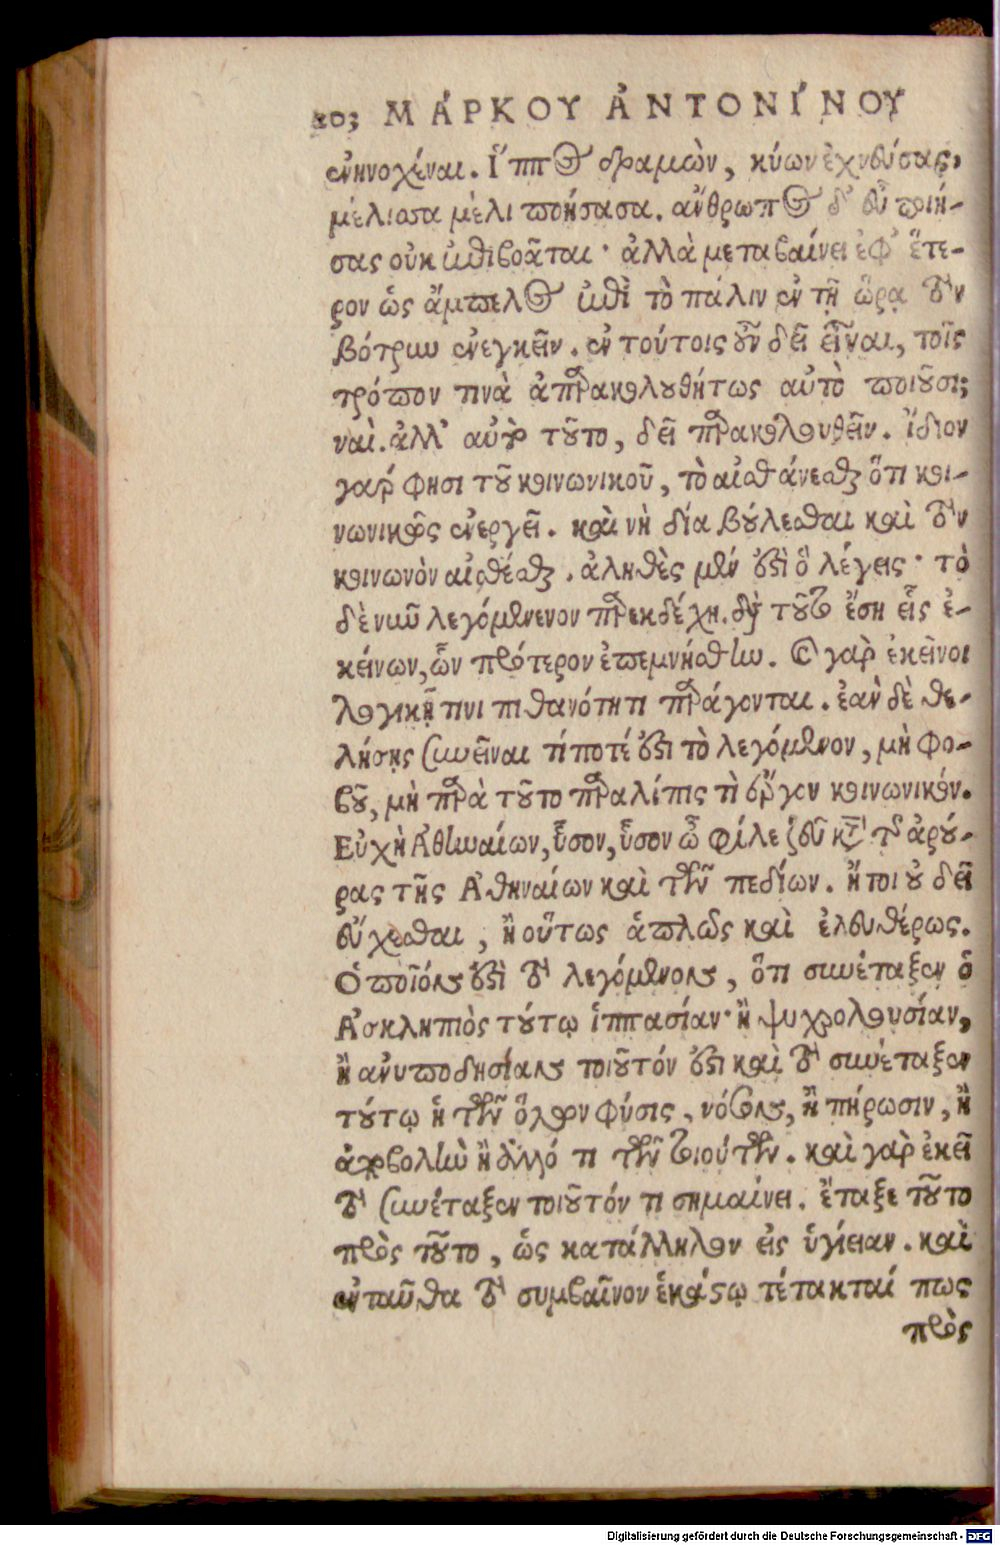 203 ΜΆΡΚΟΥ ἈΝΤΟΝΊΝΟΥ
ἐνηνοχέναι. ἵππος δραμὼν, κύων ἰχνεύσας,
μέλισσα μέλι ποιήσασα. ἄνθρωπος δ' εὖ ποιή-
σας οὐκ ἐπιβοᾶται· ἀλλὰ μεταβαίνει ἐφ' ἕτε-
ρον ὡς ἄμπελος ἐπὶ τὸ πάλιν ἐν τῇ ὥρᾳ τὸν
βότρυν ἐνεγκεῖν. ἐν τούτοις οὖν δεῖ εἶναι, τοῖς
τρόπον τινὰ ἀπαρακολουθήτως αὐτὸ ποιοῦσι;
ναὶ. ἀλλ' αὐτὸ τοῦτο, δεῖ παρακολουθεῖν. ἴδιον
γάρ φησι τοῦ κοινωνικοῦ, τὸ αἰσθάνεσθαι ὅτι κοι-
νωνικῶς ἐνεργεῖ. καὶ νὴ δία βούλεσθαι καὶ τὸν
κοινωνὸν αἰσθέσθαι. ἀληθὲς μέν ἐστὶ ὃ λέγεις· τὸ
δὲ νῦν λεγόμενενον παρεκδέχῃ. διὰ τοῦτο ἔσῃ εἷς ἐ-
κείνων, ὧν πρότερον ἐπεμνήσθην. καὶ γὰρ ἐκεῖνοι
λογικῇ τινι πιθανότητι παράγονται. ἐὰν δὲ θε-
λήσῃς συνεῖναι τί ποτέ ἐστι τὸ λεγόμενον, μὴ φο-
βοῦ, μὴ παρὰ τοῦτο παραλίπις τὶ ἔργον κοινωνικόν.
Εὐχὴ Ἀθηναίων, ὗσον, ὗσον ὦ φίλε ζεῦ κατὰ τῆς ἀρού-
ρας τῆς Ἀθηναίων καὶ τῶν πεδίων. ἤτοι οὐ δεῖ
εὔχεσθαι, ἢ οὕτως ἁπλῶς καὶ ἐλευθέρως.
Ὁποῖόν ἐστὶ τὸ λεγόμενον, ὅτι συνέταξεν ὁ
Ἀσκληπιὸς τούτῳ ἱππασίαν· ἢ ψυχρολουσίαν,
ἢ ἀνυποδησίαν τοιοῦτόν ἐστι καὶ τὸ συνέταξεν
τούτῳ ἡ τῶν ὅλων φύσις, νόσον, ἢ πήρωσιν, ἢ
ἀποβολὴν ἢ ἄλλό τι τῶν τοιούτων. καὶ γὰρ ἐκεῖ
τὸ συνέταξεν τοιοῦτόν τι σημαίνει. ἔταξε τοῦτο
πρὸς τοῦτο, ὡς κατάλληλον εἰς ὑγίειαν. καὶ
ἐνταῦθα τὸ συμβαῖνον ἑκάστῳ τέτακταί πως
πρὸς
Digitalisierung gefördert durch die Deutsche Forschungsgemeinschaft - DFG